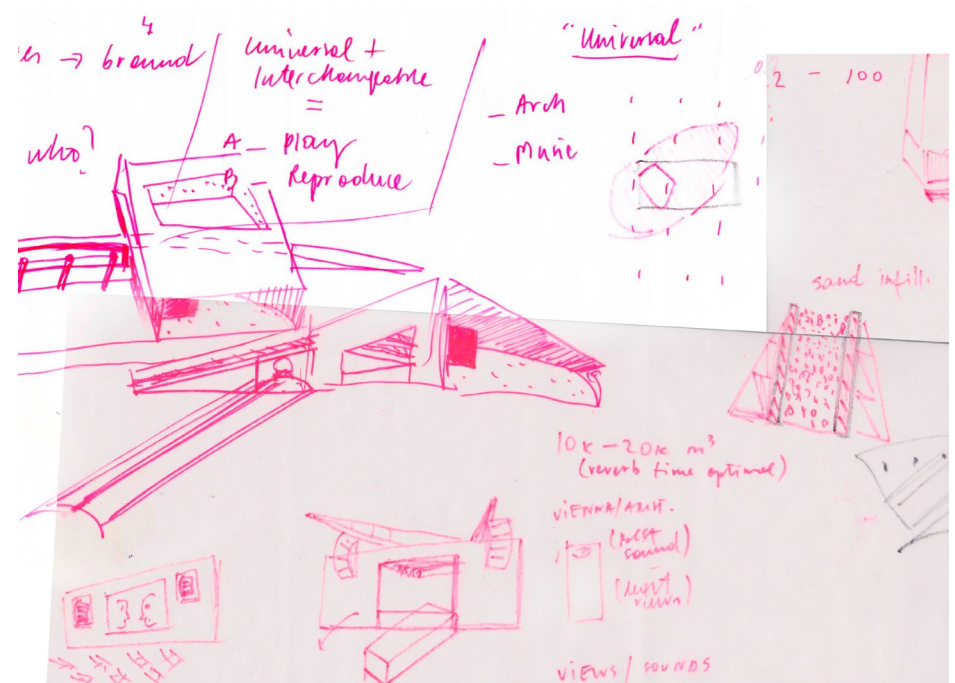 4
→ around
who?
universal +
Interchangeable
=
A – Play
B – Reproduce
"Universal"
– Arch
– Music
2 – 100
sand infill.
10K – 20K m³
(reverb time optimal)
VIENNA/AMST.
(best
sound)
(worst
views)
VIEWS / SOUNDS